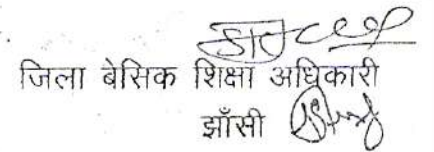 जिला बेसिक शिक्षा अधिकारी
झाँसी